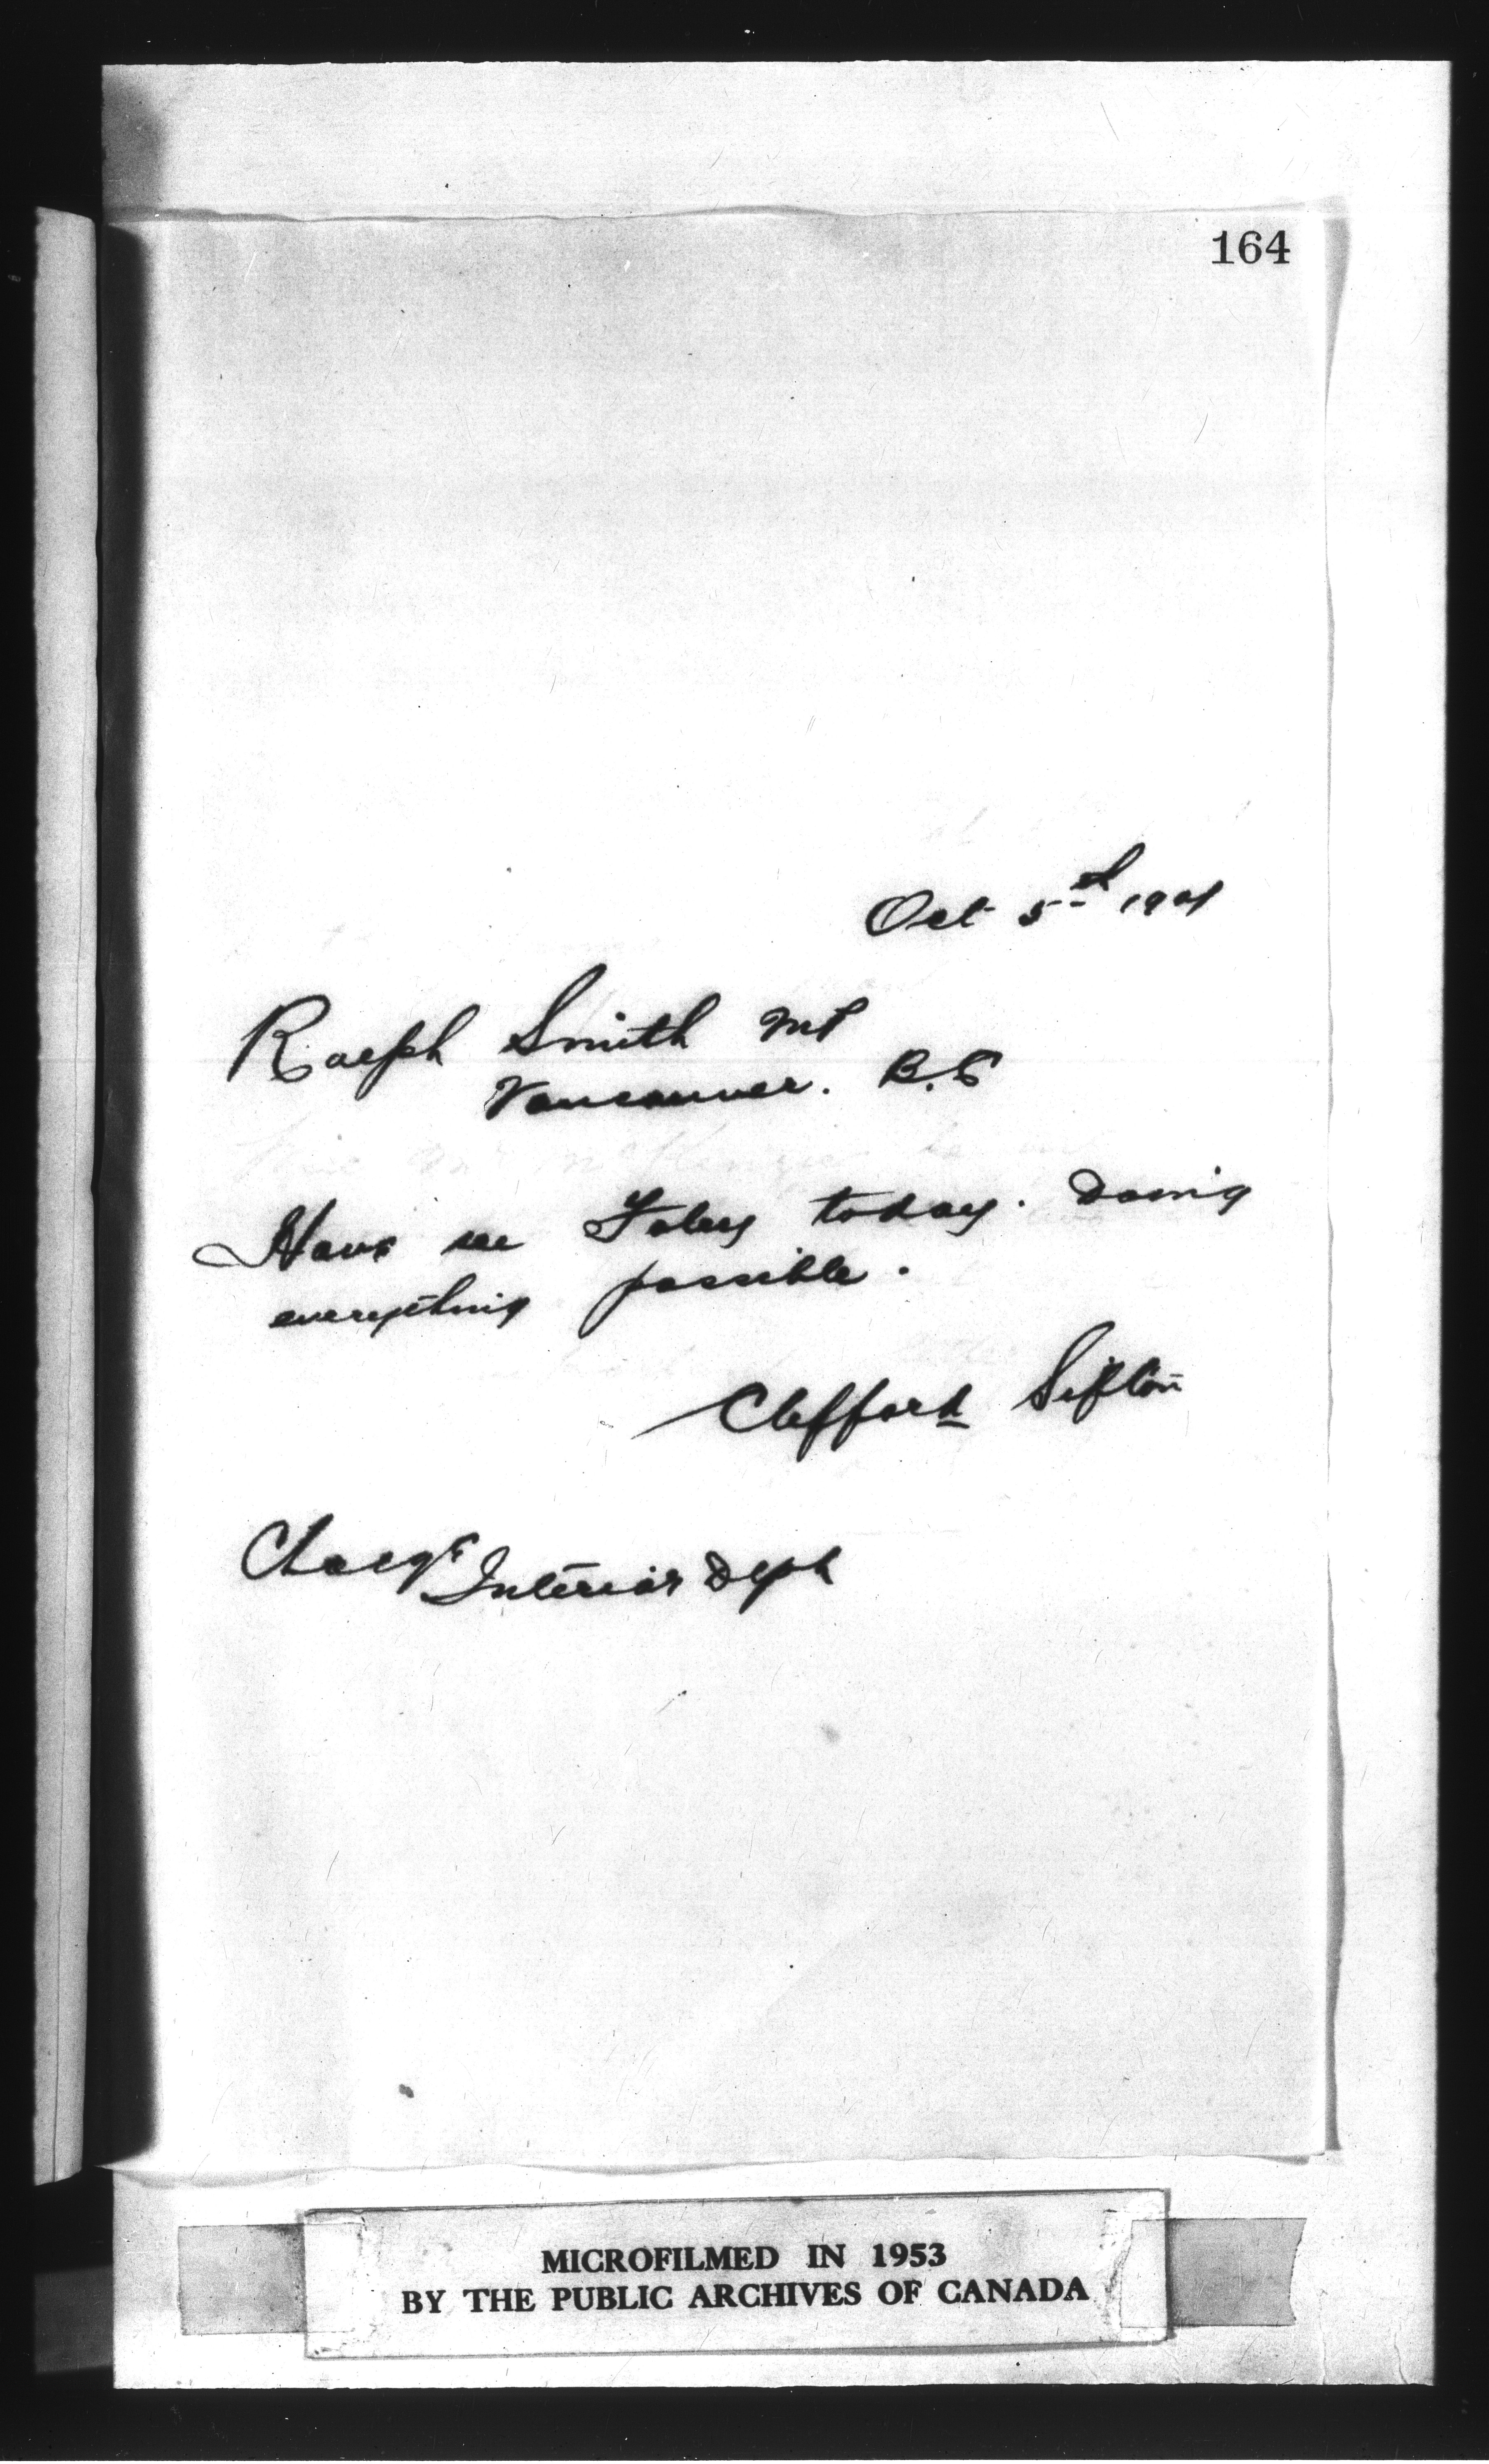 164
Oct 5th 1901
Ralph Smith MP
Vancouver. B.C
Have see Foley today. Doing
everything possible.
Clifford Sifton
Charge Interior Dept
MICROFILMED IN 1953
BY THE PUBLIC ARCHIVES OF CANADA